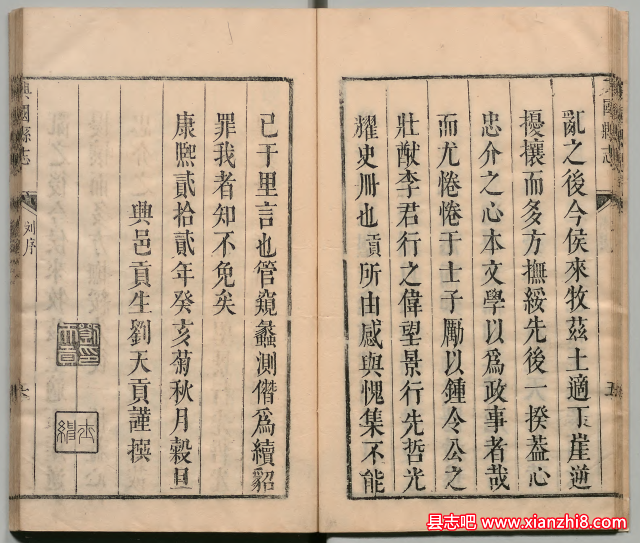 亂之後今侯來牧茲土適丁崖逆
擾攘而多方撫綏先後一揆葢心
忠介之心本文學以爲政事者哉
而尤惓惓于士子勵以鍾令公之
壯猷李君行之偉望景行先哲光
耀史冊也貢所由感與愧集不能
五
興國縣志
劉序
六
已于里言也管窺蠡測僭爲續貂
罪我者知不免矣
康熙貳拾貳年癸亥菊秋月穀旦
興邑貢生劉天貢謹撰
县志吧 www.xianzhi8.com